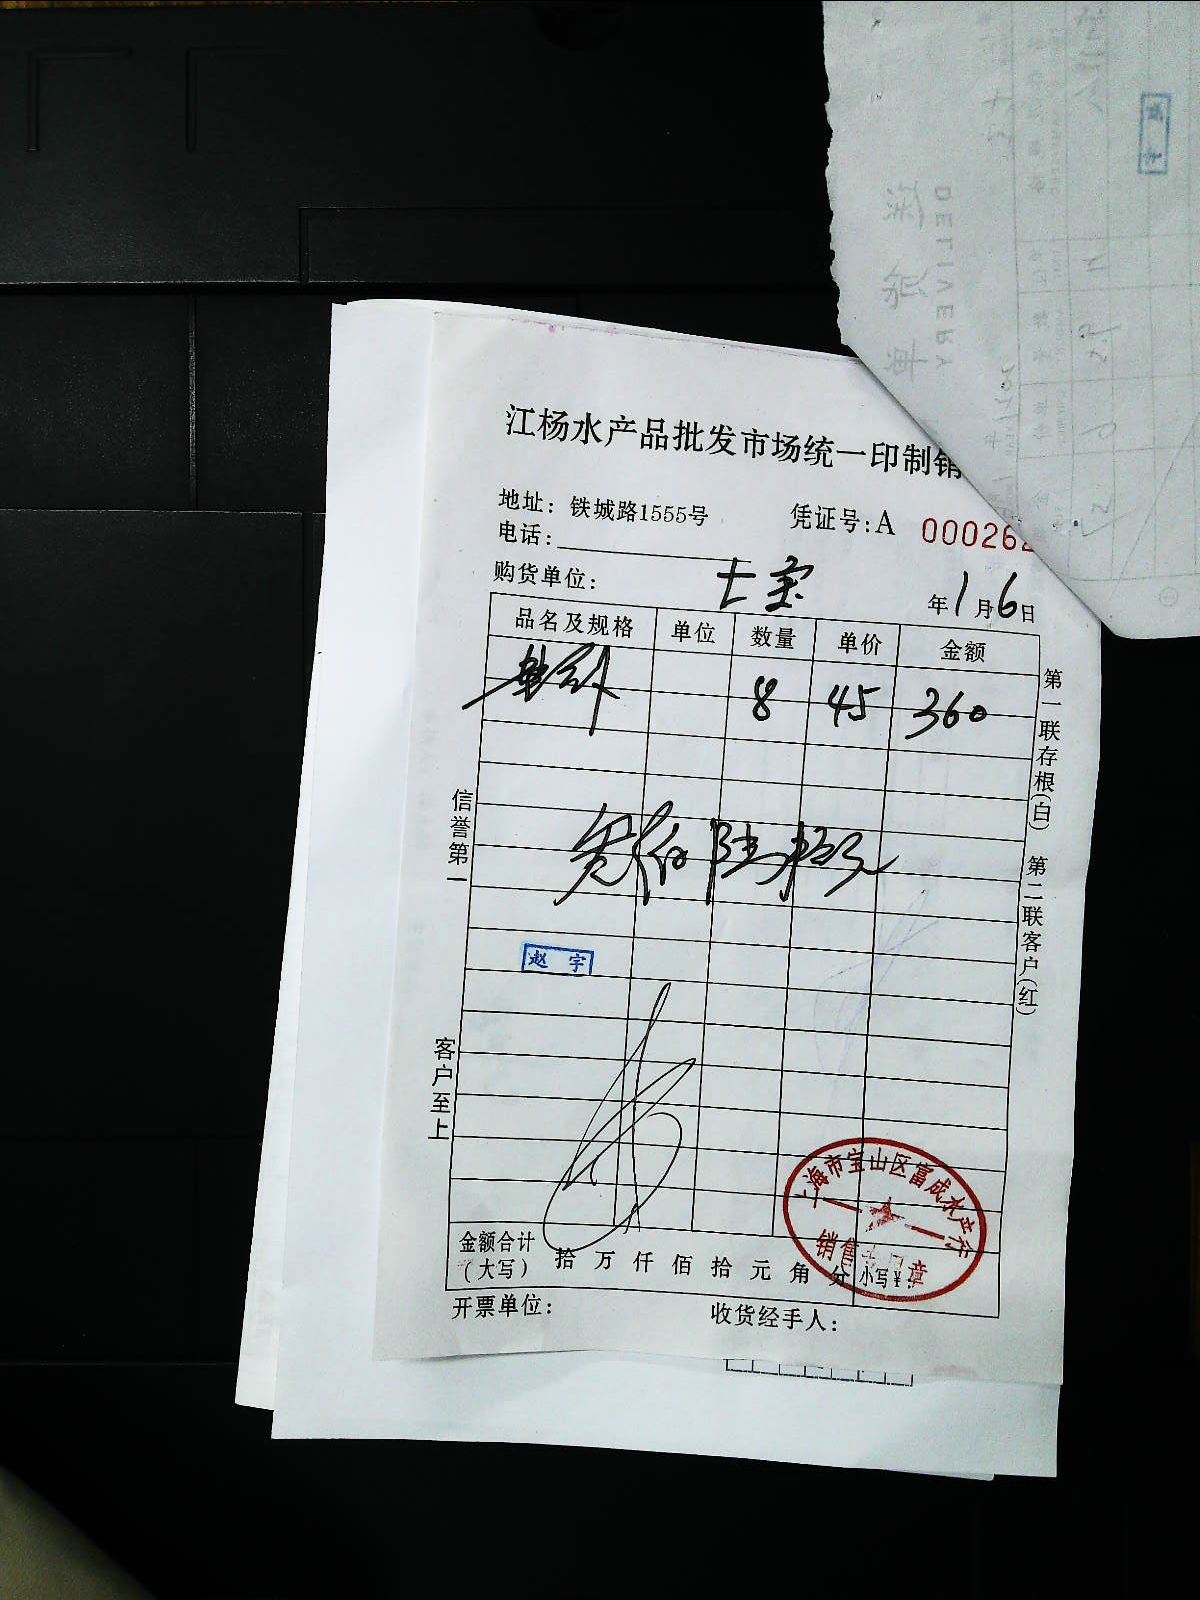 江杨水产品批发市场统一印制销
地址：铁城路1555号
凭证号:A 000262
电话：
购货单位：七宝
年1月6日
品名及规格 单位 数量 单价 金额
8 45 360
叁佰陆拾元
赵宇
信誉第一
客户至上
第一联存根(白) 第二联客户(红)
上海市宝山区富成水产行
销售专用章
金额合计（大写） 拾 万 仟 佰 拾 元 角 分 小写￥：
开票单位： 收货经手人：
DELIVERY